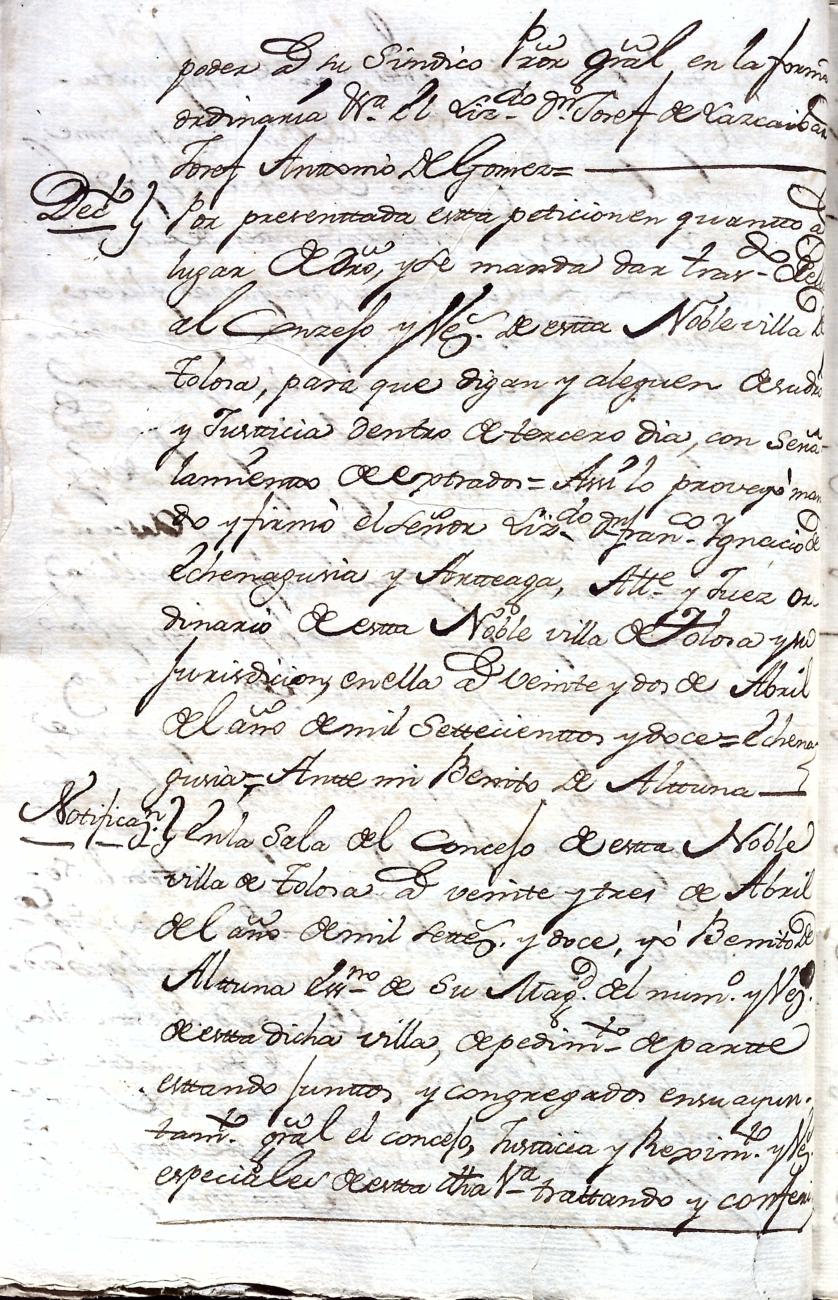 poder a su Sindico Pror. gral en la forma
ordinaria Va. el Lizdo. Dn. Josef de Lazcaiban
Josef Antonio de Gomez=
Decto. } Por presenttada estta peticion en quantto a
lugar de dro, y se manda dar trasdo. de ella
al Conzejo y Vez. de estta Noble villa de
Tolosa, para que digan y aleguen de su dro
y Justticia dentro de tercero dia, con señа
lamiento de esptrados= Asi lo proveyó man
do y firmó el señor Lizdo. Dn. Franco. Ygnacio de
Echenagusia y Artteaga, Altte. y Juez or
dinario de estta Noble villa de Tolosa y su
Jurisdicion, en ella a veinte y dos de Abril
del año de mil Settecienttos y doce= Echena
gusia= Antte mi Benito de Alttuna
Notificaon. } En la Sala del Concejo de estta Noble
villa de Tolosa a veinte y tres de Abril
del año de mil settes. y doce, yo Benito de
Alttuna Essno. de Su Magd. del numo. y Vezo.
de estta dicha villa, de pedimto. de partte
esttando Junttos y congregados en su ayun
tamto. gral el concejo, Justicia y Reximto. y Vezs.
especiales de estta dha Va. trattando y conferi